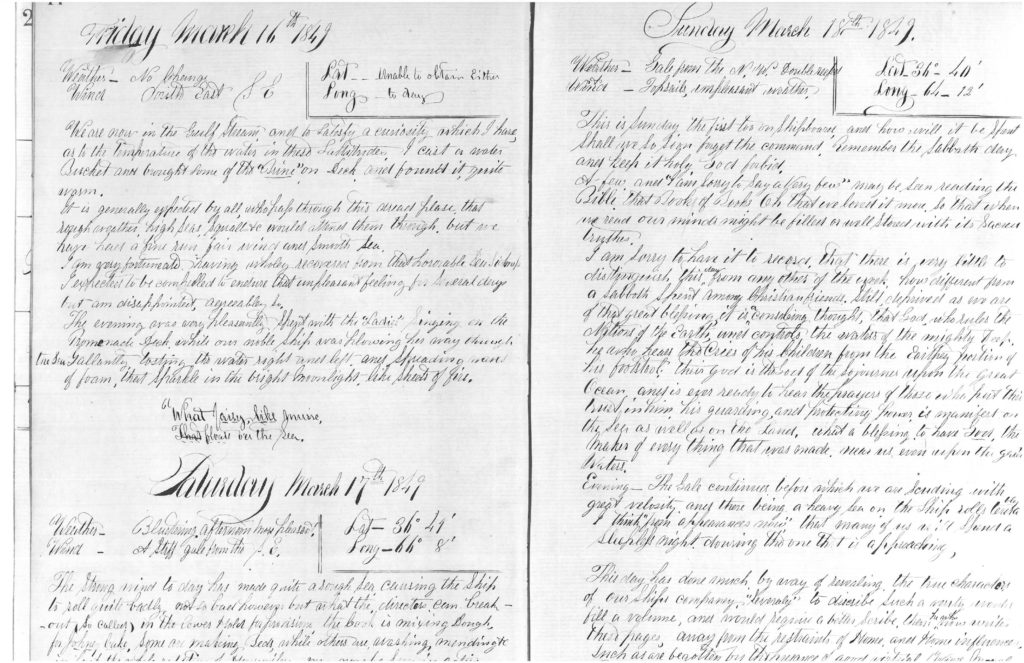 Friday March 16th 1849
Weather – No Change
Wind South East S E
Lat – – Unable to obtain Either
Long – to day
We are now in the Gulf Stream and to satisfy a curiosity, which I have
as to the temperature of the water in these Latitudes I cast a water
Bucket and brought some of the "Brine" on Deck and found it quite
warm.
It is generally expected by all who pass through this dread place, that
rough weather, high seas, squalls &c would attend them through, but we
have had a fine run fair wind and smooth sea.
I am very fortunate having wholey recovered from that horrable Sea Sickness
I expected to be compelled to endure that unpleasant feeling for several days
but am disappointed, agreeably so.
The evening was very pleasantly spent with the "Ladies" singing on the
Promenade Deck, while our noble ship was plowing her way through
the Sea Gallantly tossing the water right and left and spreading
of foam, that sparkle in the bright moonlight, like sheets of fire.
"What fairy like music
That floats over the sea.
Saturday March 17th 1849
Weather – Blustering, afternoon more pleasant
Wind – A stiff gale from the S. E.
Lat – 36° 41'
Long – 66° 8'
The Strong wind to day has made quite a rough sea causing the Ship
to roll quite badly, not so bad however but what the directors, can break
out (so called) in the lower hold for provisions the cook is mixing Dough,
for Johny Cake, some are making Beds, while others are washing, mending &c
Sunday March 18th 1849.
Weather – Gale from the N. W. Double reefed
Wind – Topsails, unpleasant weather.
Lat 36° – 40'
Long – 64 – 12'
This is Sunday the first too on shipboard, and how will it be spent
Shall we so soon forget the command, remember the Sabbath day
and keep it holy, God forbid.
A few, and "I am sorry to say a very few" may be seen reading the
Bible, that Book of Books Oh that we loved it more, so that when
we read our minds might be filled or well stored with its Sacred
truths.
I am sorry to have it to record, that there is very little to
distinguish this day from any other of the week, how different from
a Sabbath spent among Christian friends. Still deprived as we are
of that great blessing, it is consoling thought, that God, who rules the
Nations of the Earth, and controls the waters of the mighty Deep.
he who hears the cries of his Children from the Earthly portion of
his footstool, their God is the God of the Sojourner upon the great
Ocean, and is ever ready to hear the prayers of those who put their
trust in him, his guarding and protecting power is manifest on
the Sea as well as on the Land, what a blessing to have God, the
maker of every thing that was made, near us, even upon the great
Waters.
Evening – The Gale continues before which we are scuding with
great velocity, and there being a heavy sea on the Ship rolls
I think "from appearances now" that many of us will spend a
sleepless night, during the one that is approaching,
This day has done much by way of revealing the true character
of our ships company, to discribe such a would
fill a volume, and would require a better scribe, than he who writes
these pages, away from the restraints of Home, and Home influence.